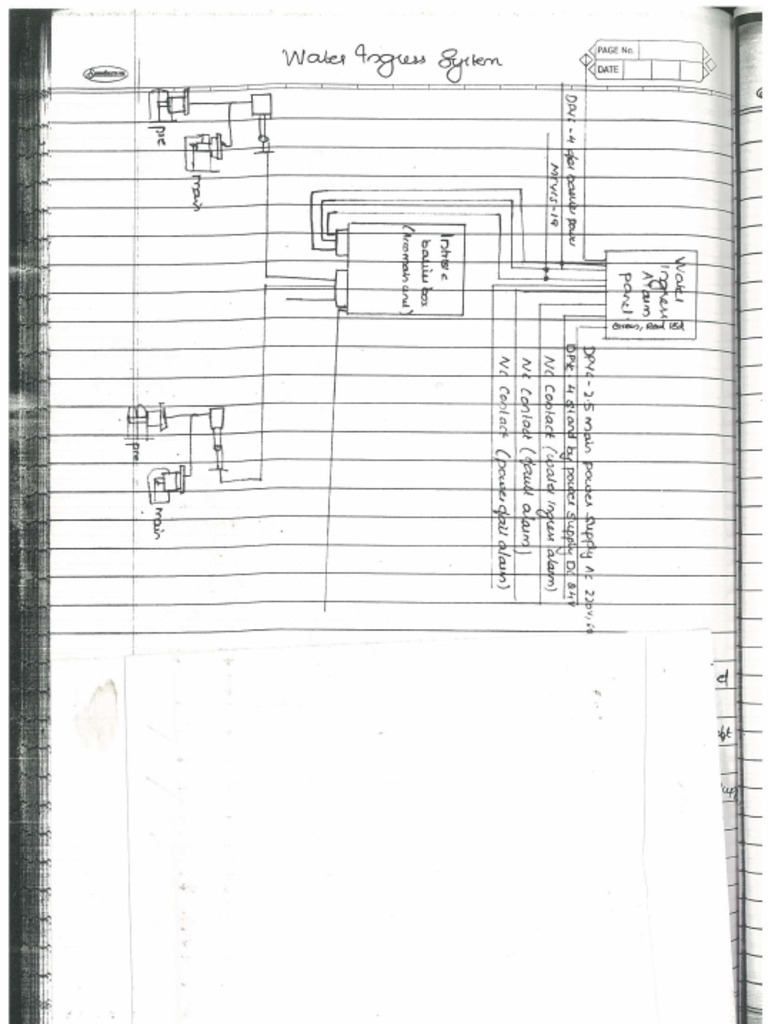 Water Ingress System
PAGE No.
DATE
Sundaram
pre
main
DPYC-4 for barrier power
MPYCS-19
Water
ingress
Alarm
panel
Green, Red LED
barrier box
DPYC-2.5 main power supply AC 220V, 60
DPYC 4 stand by power supply DC 24V
NC Contact (water ingress alarm)
NC Contact (fault alarm)
NC Contact (power fail alarm)
pre
main